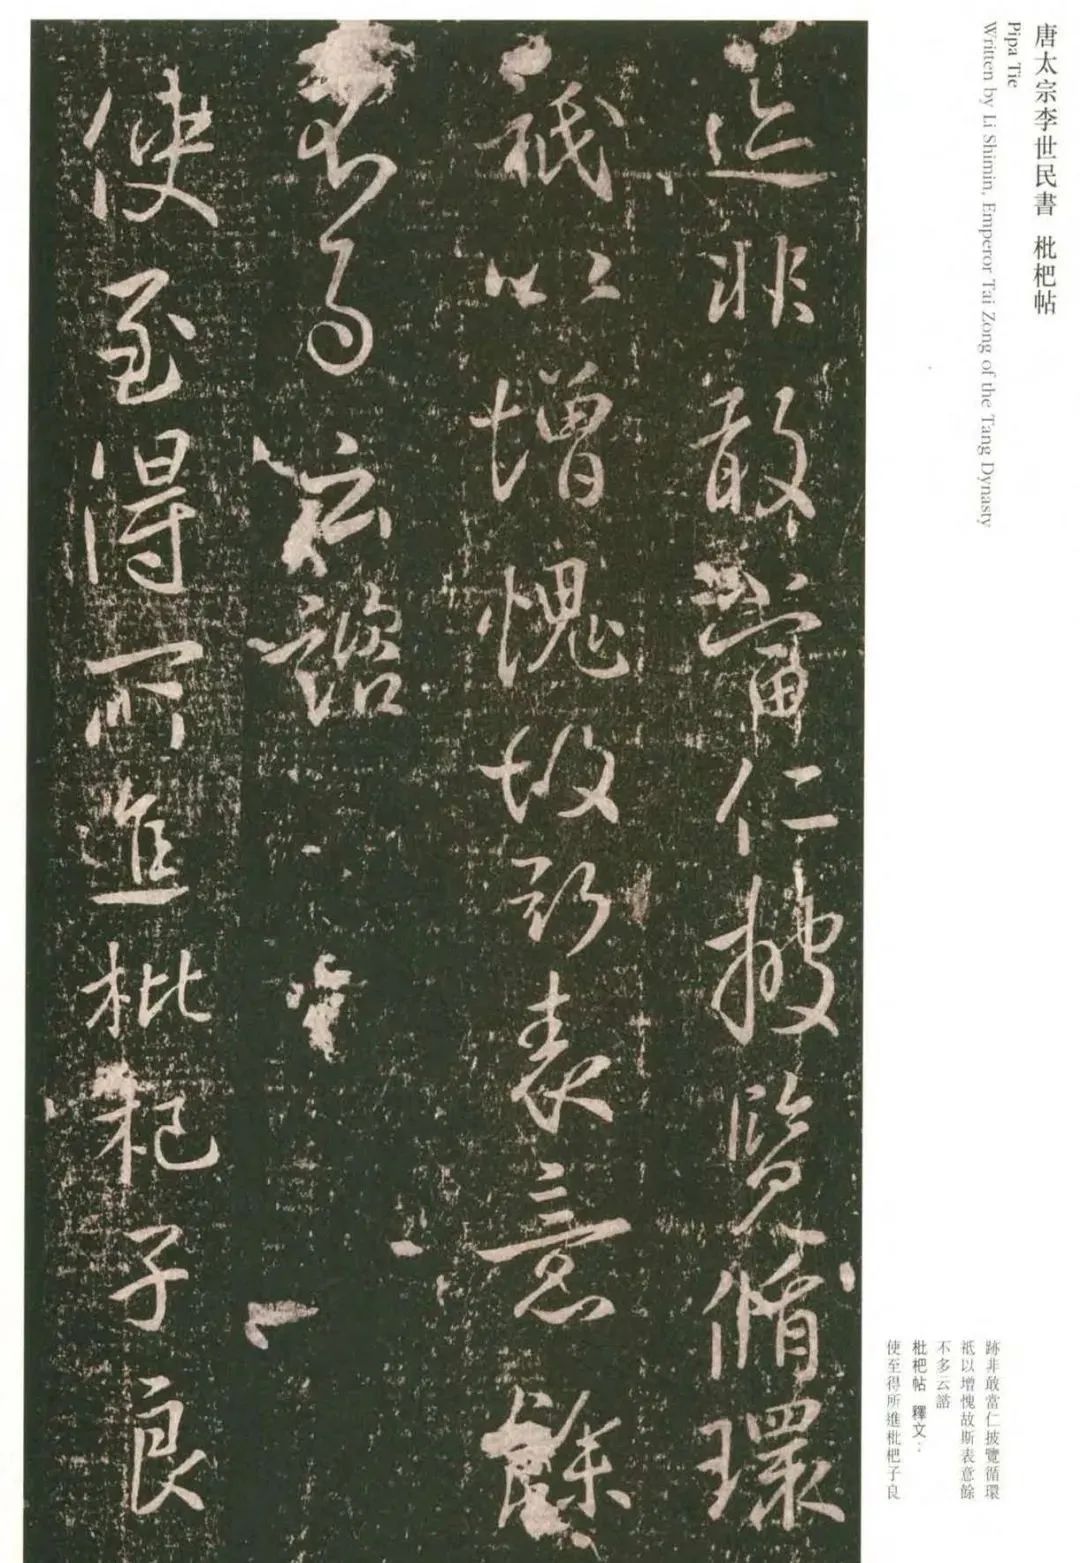 唐太宗李世民書 枇杷帖
Pipa Tie
Written by Li Shimin, Emperor Tai Zong of the Tang Dynasty
跡非敢當仁披覽循環
祇以增愧故斯表意餘
不多云諮
枇杷帖 釋文：
使至得所進枇杷子良
迹非敢當仁披覽循環
祇以增愧故斯表意餘
不多云諮
使至得所進枇杷子良